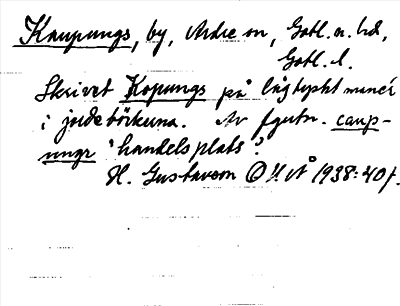 Kaupungs, by, Ardre sn, Gotl. n. hd,
Gotl. l.
Skrivet Kopungs på lågtyskt manér
i jordeböckerna. Av fgutn. caup-
ungr 'handelsplats'?
H. Gustavson OUÅ 1938:40f.